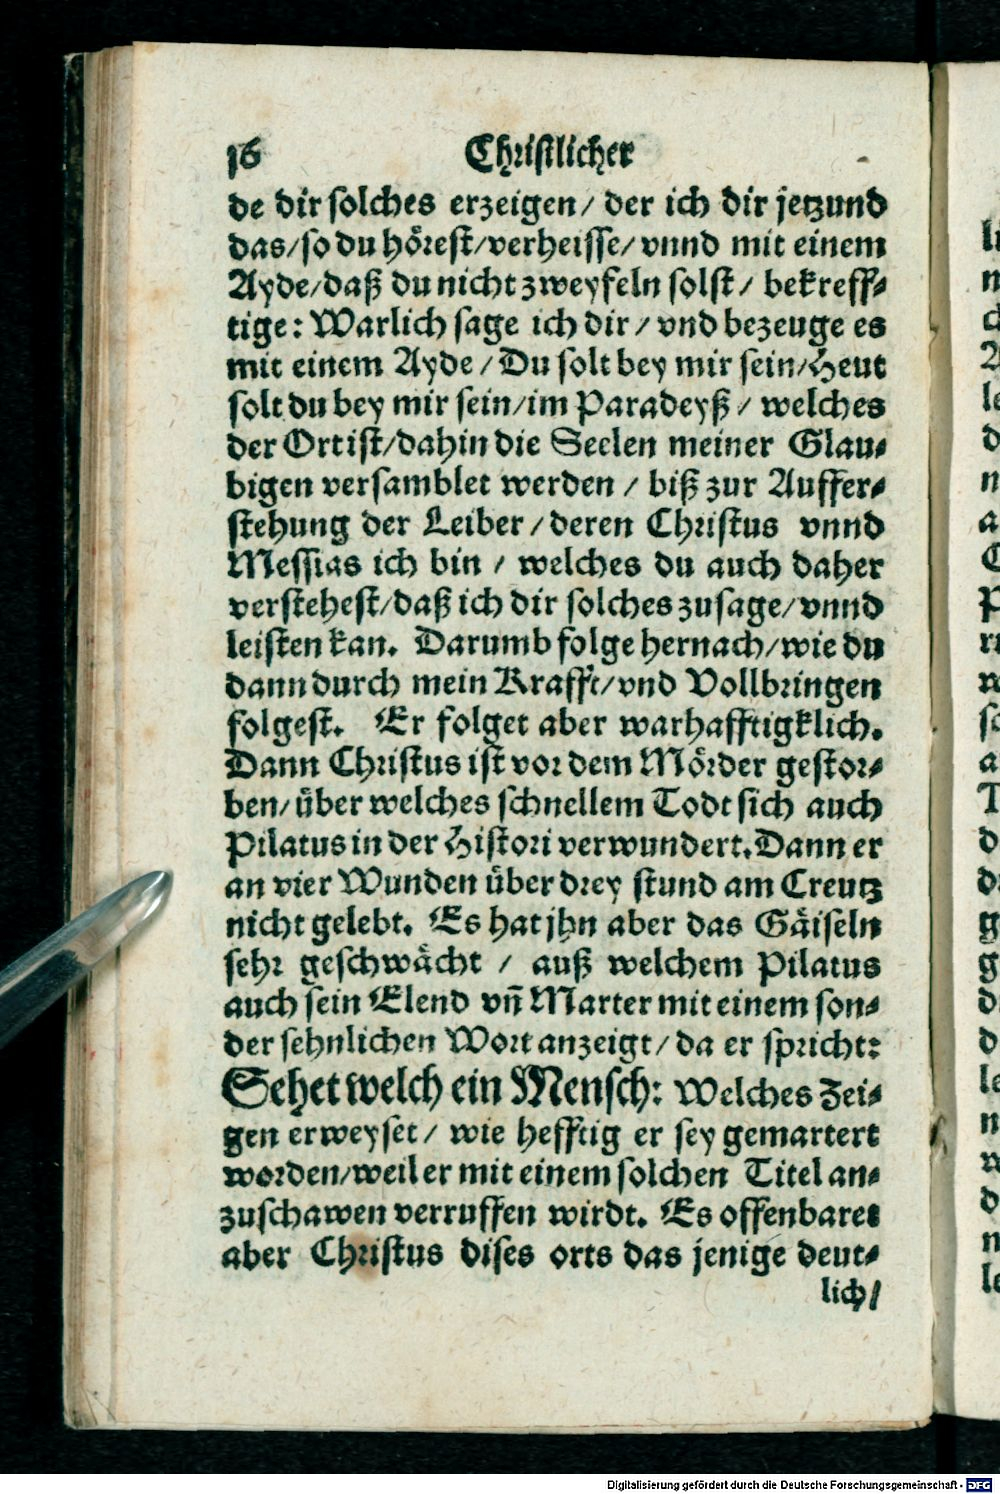 16 Christlicher
de dir solches erzeigen/ der ich dir jetzund
das/so du hörest/verheisse/vnnd mit einem
Ayde/daß du nicht zweyfeln solst/ bekreff⸗
tige: Warlich sage ich dir/ vnd bezeuge es
mit einem Ayde/ Du solt bey mir sein/Heut
solt du bey mir sein/im Paradeyß/ welches
der Ort ist/dahin die Seelen meiner Glau⸗
bigen versamblet werden/ biß zur Auffer⸗
stehung der Leiber/deren Christus vnnd
Messias ich bin/ welches du auch daher
verstehest/daß ich dir solches zusage/vnnd
leisten kan. Darumb folge hernach/wie du
dann durch mein Krafft/vnd Vollbringen
folgest. Er folget aber warhafftigklich.
Dann Christus ist vor dem Mörder gestor⸗
ben/über welches schnellem Todt sich auch
Pilatus in der Histori verwundert. Dann er
an vier Wunden über drey stund am Creutz
nicht gelebt. Es hat jhn aber das Gäiseln
sehr geschwächt/ auß welchem Pilatus
auch sein Elend vñ Marter mit einem son⸗
der sehnlichen Wort anzeigt/ da er spricht:
Sehet welch ein Mensch: Welches Zei⸗
gen erweyset/ wie hefftig er sey gemartert
worden/weil er mit einem solchen Titel an⸗
zuschawen verruffen wirdt. Es offenbaret
aber Christus dises orts das jenige deut⸗
lich/
Digitalisierung gefördert durch die Deutsche Forschungsgemeinschaft - DFG